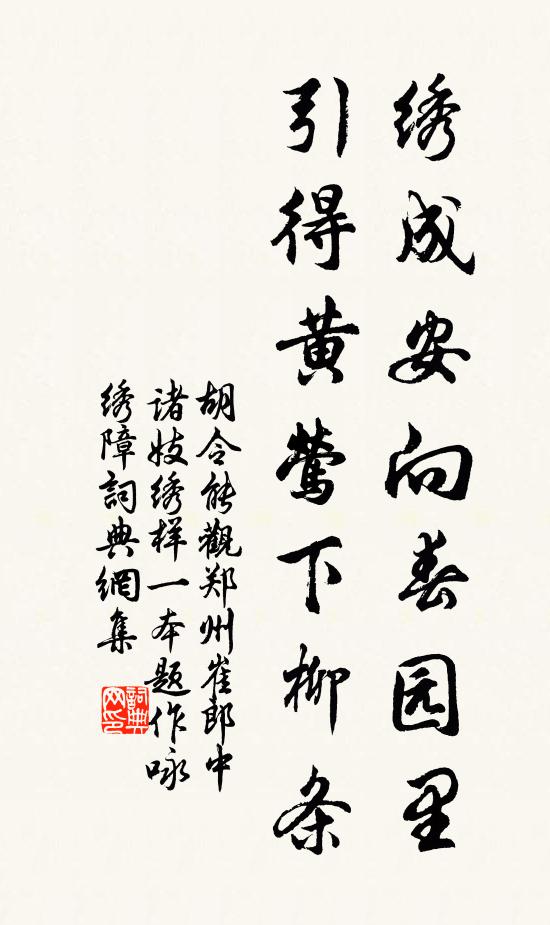 绣成安向春园里
引得黄莺下柳条
胡令能觀郑州崔郎中
诸妓绣样一本题作咏
绣障詞典網集
詞典
网印